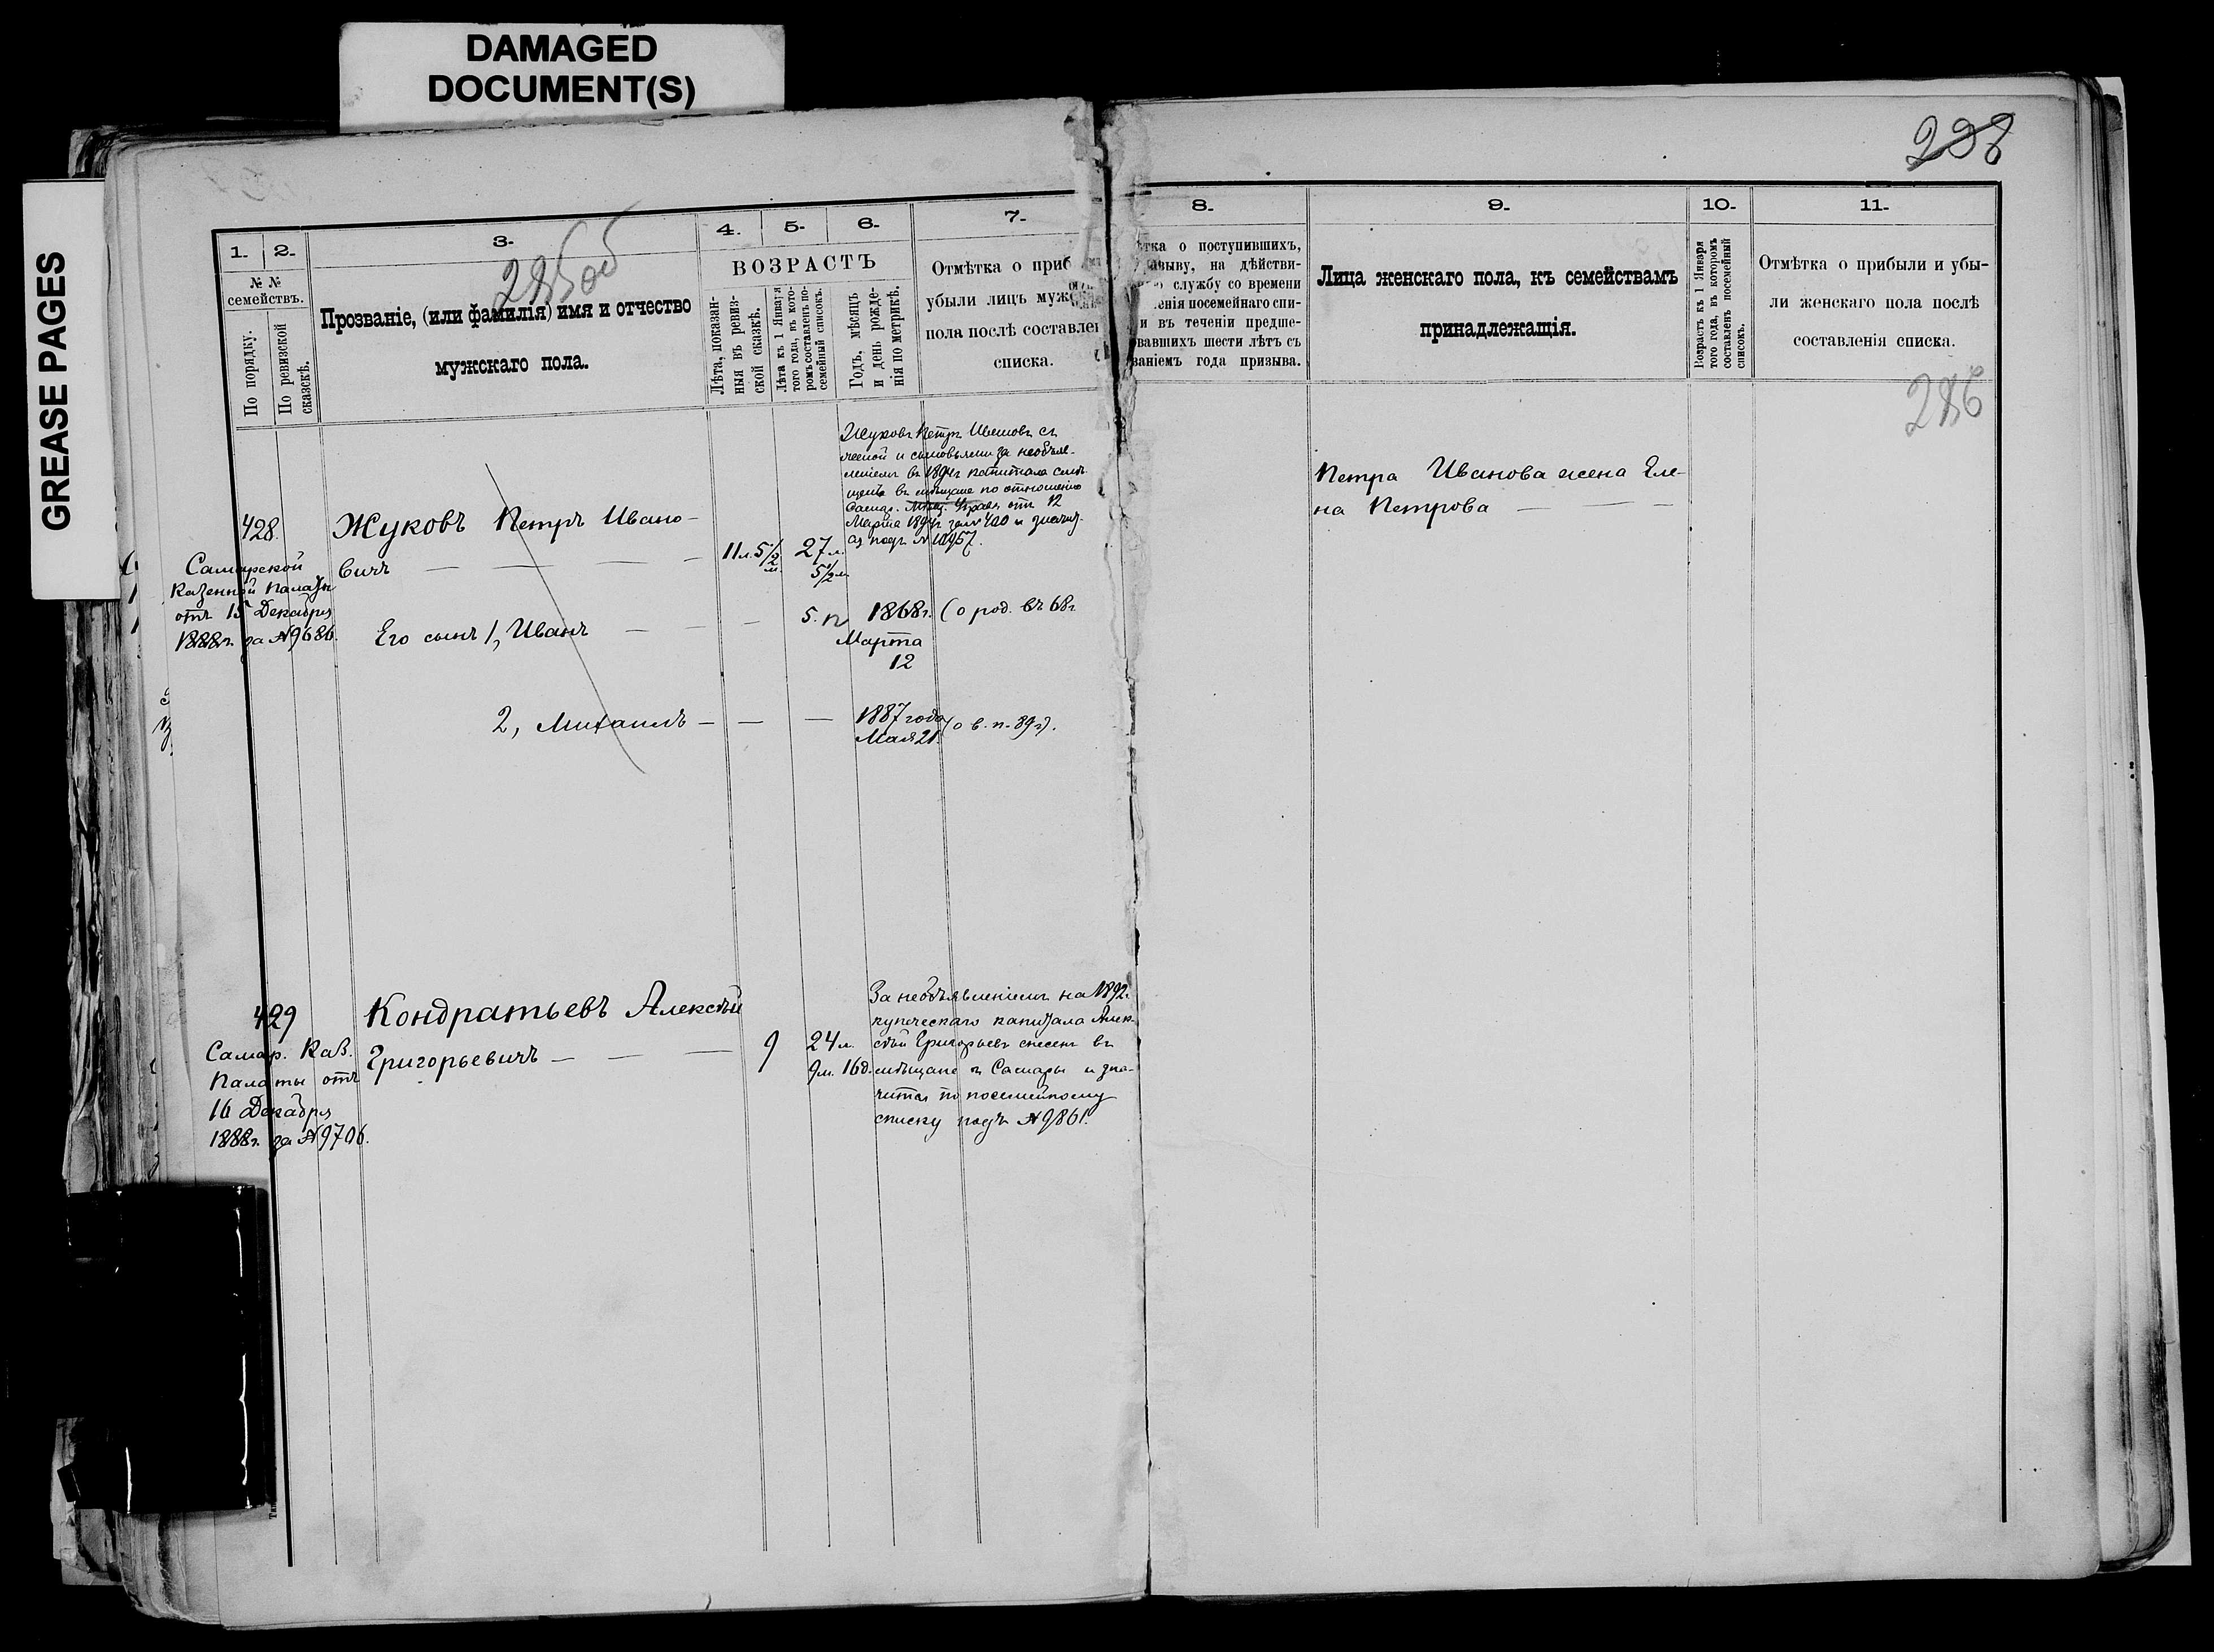 DAMAGED
DOCUMENT(S)
GREASE PAGES
298
285об
286
1.
2.
3.
4.
5.
6.
7.
8.
9.
10.
11.
№ №
семействъ.
По порядку.
По ревизской
сказкѣ.
Прозваніе, (или фамилія) имя и отчество
мужскаго пола.
ВОЗРАСТЪ
Лѣта, показан-
ныя въ ревиз-
ской сказкѣ.
Лѣта къ 1 Января
того года, въ кото-
ромъ составленъ по-
семейный списокъ.
Годъ, мѣсяцъ
и день рожде-
нія по метрикѣ.
Отмѣтка о приб
убыли лицъ муж
пола послѣ составле
списка.
тка о поступившихъ,
зыву, на дѣйстви-
службу со времени
енія посемейнаго спи-
и въ теченіи предше-
вавшихъ шести лѣтъ съ
ваніемъ года призыва.
Лица женскаго пола, къ семействамъ
принадлежащія.
Возрастъ къ 1 Января
того года, въ которомъ
составленъ посемейный
списокъ.
Отмѣтка о прибыли и убы-
ли женскаго пола послѣ
составленія списка.
428.
Самарской
Казенной Палаты
отъ 15 Декабря
1888г. за №9686.
Жуковъ Петръ Ивано-
вичъ
11л. 5½
м.
27л.
5½м
Жуковъ Петръ Ивановъ съ
женой и сыновьями за необъяв-
леніемъ въ 1894г капитала
въ мѣщане по отношенію
Самар. Мѣщ. Управы отъ 12
Марта 1894г за № 400 и значит-
ся подъ № 10957.
Его сынъ 1, Иванъ
1868г. (о род. въ 68г
Марта
12
2, Михаилъ
1887 года (о в. п. 89г).
Мая 21.
Петра Иванова жена Еле-
на Петрова
429
Самар. Каз.
Палаты отъ
16 Декабря
1888г. за №9706.
Кондратьевъ Алексѣй
Григорьевичъ
9
24л.
9м. 16д.
За необъявленіемъ на 1892г.
купеческаго капитала Алек-
сѣй Григорьевъ снесенъ въ
мѣщане г. Самары и зна-
чится по посемейному
списку подъ №9861.